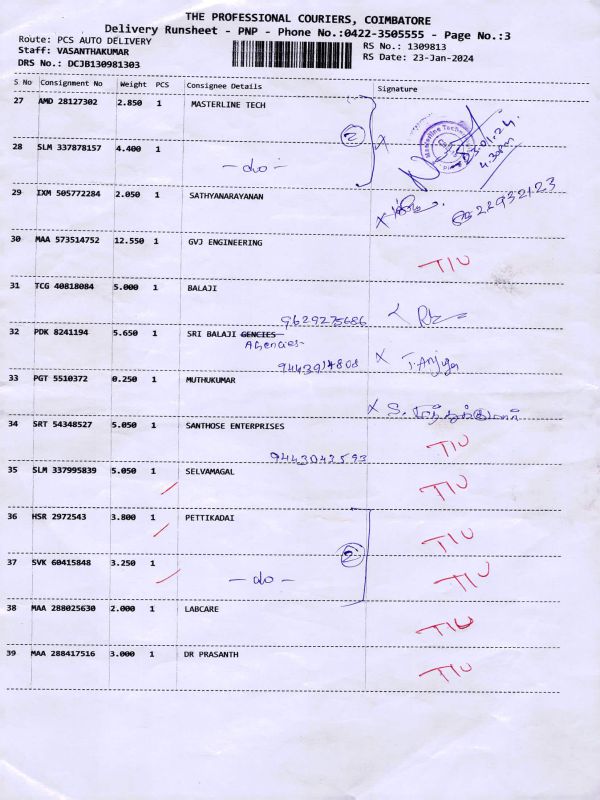 THE PROFESSIONAL COURIERS, COIMBATORE
Delivery Runsheet - PNP - Phone No.:0422-3505555 - Page No.:3
Route: PCS AUTO DELIVERY RS No.: 1309813
Staff: VASANTHAKUMAR RS Date: 23-Jan-2024
DRS No.: DCJB130981303
S No Consignment No Weight PCS Consignee Details Signature
27 AMD 28127302 2.850 1 MASTERLINE TECH
2
4.30pm
28 SLM 337878157 4.400 1
- do -
29 IXM 505772284 2.050 1 SATHYANARAYANAN
30 MAA 573514752 12.550 1 GVJ ENGINEERING
TIU
31 TCG 40818084 5.000 1 BALAJI
9629275686
32 PDK 8241194 5.650 1 SRI BALAJI GENCIES
Agencies
T. Anjuga
33 PGT 5510372 0.250 1 MUTHUKUMAR
34 SRT 54348527 5.050 1 SANTHOSE ENTERPRISES
TIU
9443042593
35 SLM 337995839 5.050 1 SELVAMAGAL
TIU
36 HSR 2972543 3.800 1 PETTIKADAI
TIU
2
37 SVK 60415848 3.250 1
- do - TIU
38 MAA 288025630 2.000 1 LABCARE
TIU
39 MAA 288417516 3.000 1 DR PRASANTH
TIU